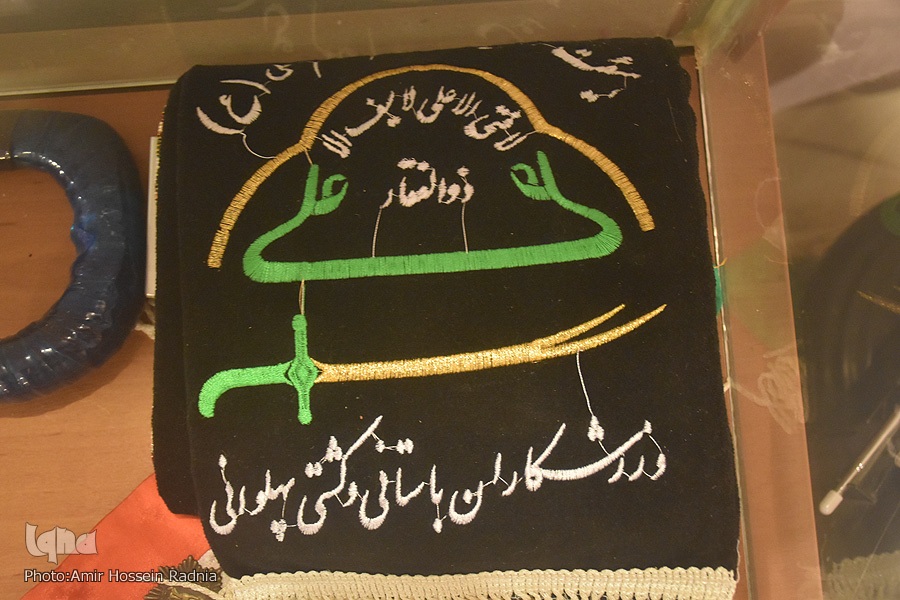 (ع)
لا فتی الا علی لا سیف الا
ذوالفقار
علی
ورزشکاران باستانی و کشتی پهلوانی
Iqna
Photo:Amir Hossein Radnia